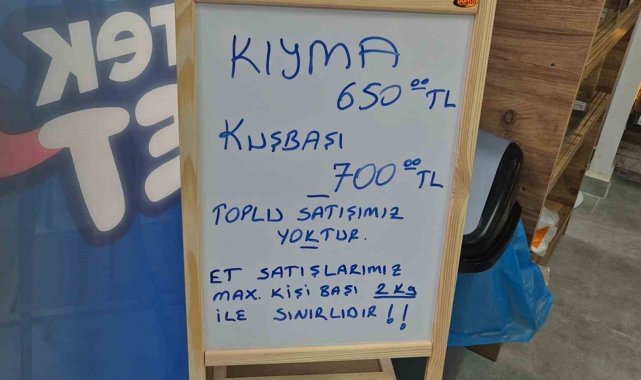 KIYMA
650.00 TL
KUŞBAŞI
700.00 TL
TOPLU SATIŞIMIZ
YOKTUR.
ET SATIŞLARIMIZ
MAX. KİŞİ BAŞI 2 Kg
İLE SINIRLIDIR !!
TEK
ET